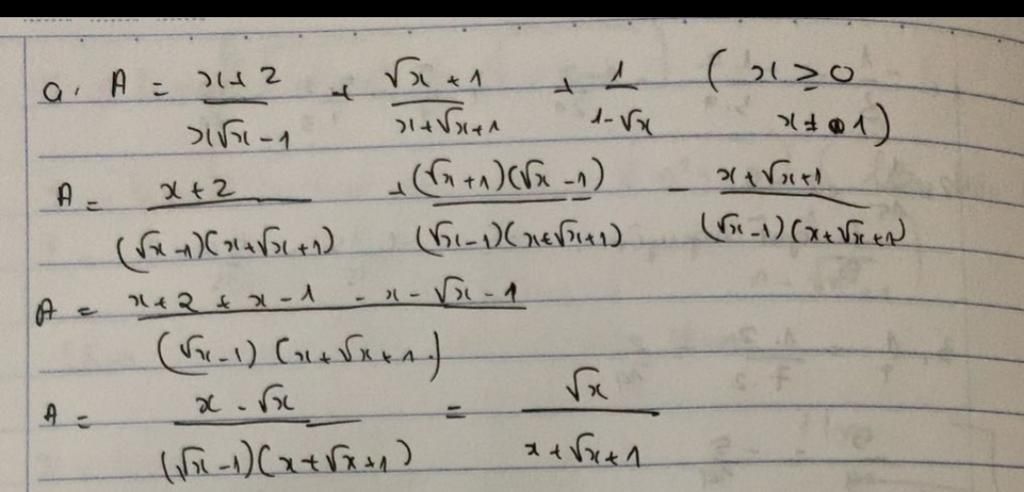 a. A = (x+2)/(x√x - 1) + (√x + 1)/(x+√x+1) + 1/(1-√x) ( x ≥ 0
x ≠ 1 )
A = (x+2)/((√x-1)(x+√x+1)) + ((√x+1)(√x-1))/((√x-1)(x+√x+1)) - (x+√x+1)/((√x-1)(x+√x+1))
A = (x+2+x-1-x-√x-1)/((√x-1)(x+√x+1))
A = (x-√x)/((√x-1)(x+√x+1)) = √x/(x+√x+1)